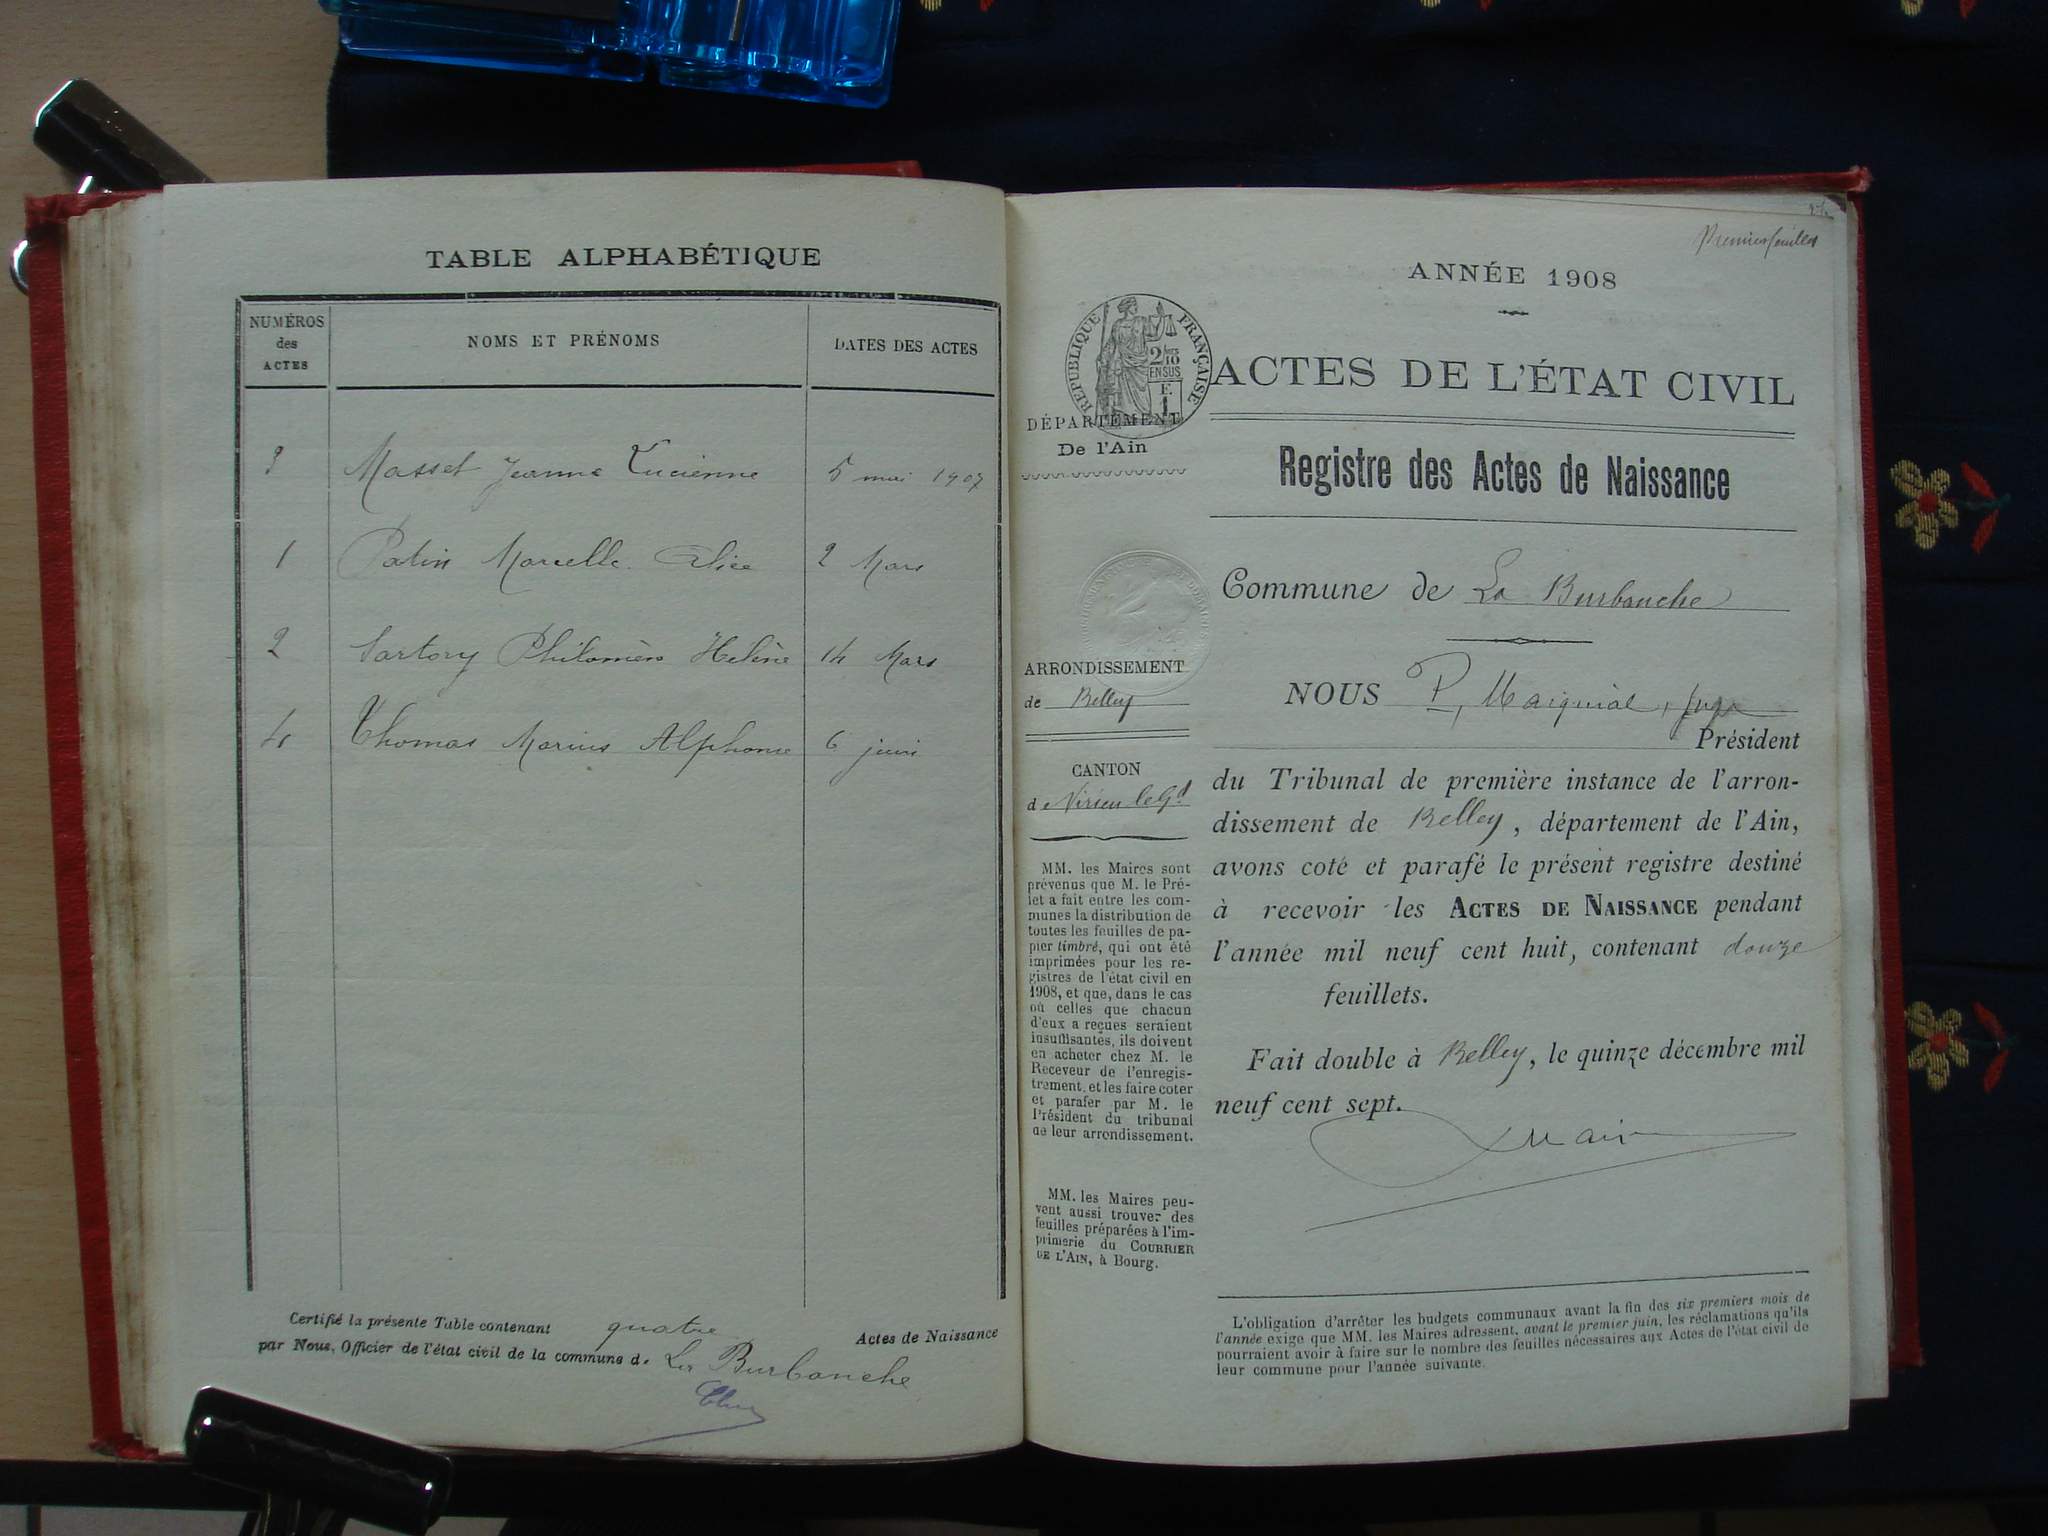 TABLE ALPHABÉTIQUE
NUMÉROS des ACTES
NOMS ET PRÉNOMS
DATES DES ACTES
3 Masset Jeanne Lucienne 5 mai 1907
1 Patin Marcelle Alice 2 Mars
2 Sartory Philomène Hélène 14 Mars
4 Thomas Marius Alphonse 6 juin
Certifié la présente Table contenant quatre Actes de Naissance
par Nous, Officier de l'état civil de la commune de La Burbanche
Premier feuillet
ANNÉE 1908
RÉPUBLIQUE FRANÇAISE
2/10 EN SUS
ACTES DE L'ÉTAT CIVIL
DÉPARTEMENT
De l'Ain
Registre des Actes de Naissance
Commune de La Burbanche
ARRONDISSEMENT
de Belley
CANTON
de Virieu le Gd
MM. les Maires sont
prévenus que M. le Pré-
fet a fait entre les com-
munes la distribution de
toutes les feuilles de pa-
pier timbré, qui ont été
imprimées pour les re-
gistres de l'état civil en
1908, et que, dans le cas
où celles que chacun
d'eux a reçues seraient
insuffisantes, ils doivent
en acheter chez M. le
Receveur de l'enregis-
trement, et les faire coter
et parafer par M. le
Président du tribunal
de leur arrondissement.
MM. les Maires peu-
vent aussi trouver des
feuilles préparées à l'im-
primerie du COURRIER
DE L'AIN, à Bourg.
NOUS P. Maiquial, juge
Président
du Tribunal de première instance de l'arron-
dissement de Belley, département de l'Ain,
avons coté et parafé le présent registre destiné
à recevoir les ACTES DE NAISSANCE pendant
l'année mil neuf cent huit, contenant douze
feuillets.
Fait double à Belley, le quinze décembre mil
neuf cent sept.
L'obligation d'arrêter les budgets communaux avant la fin des six premiers mois de
l'année exige que MM. les Maires adressent, avant le premier juin, les réclamations qu'ils
pourraient avoir à faire sur le nombre des feuilles nécessaires aux Actes de l'état civil de
leur commune pour l'année suivante.